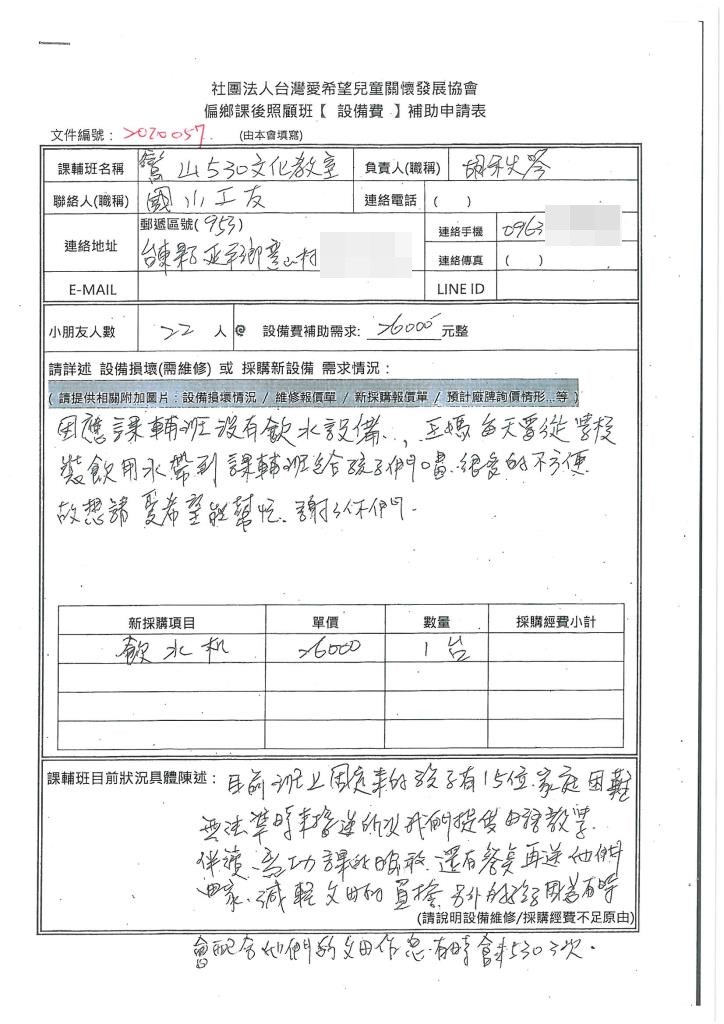 社團法人台灣愛希望兒童關懷發展協會
偏鄉課後照顧班【 設備費 】補助申請表
文件編號：2020057. (由本會填寫)
課輔班名稱 鸞山530文化教室 負責人(職稱) 胡
聯絡人(職稱) 國小工友 連絡電話 ( )
連絡地址 郵遞區號(953) 連絡手機 0963
台東縣延平鄉鸞山村 連絡傳真 ( )
E-MAIL LINE ID
小朋友人數 22 人 @ 設備費補助需求: 26000 元整
請詳述 設備損壞(需維修) 或 採購新設備 需求情況：
( 請提供相關附加圖片：設備損壞情況 / 維修報價單 / 新採購報價單 / 預計廠牌詢價情形...等 )
因應課輔班沒有飲水設備.，王媽每天會從學校
裝飲用水帶到課輔班給孩子們喝.很多的不方便
故想請愛希望能幫忙.謝謝你們.
新採購項目 單價 數量 採購經費小計
飲水机 26000 1台
課輔班目前狀況具體陳述： 目前班上固定來的孩子有15位.家庭困難
無法準時來接送所以我們提供母語教學.
伴讀. 功課 還有餐食再送他們
回家.減輕父母的負擔.另外的 因為有時
(請說明設備維修/採購經費不足原由)
會配合他們的父母作息.有時會來530 3次.